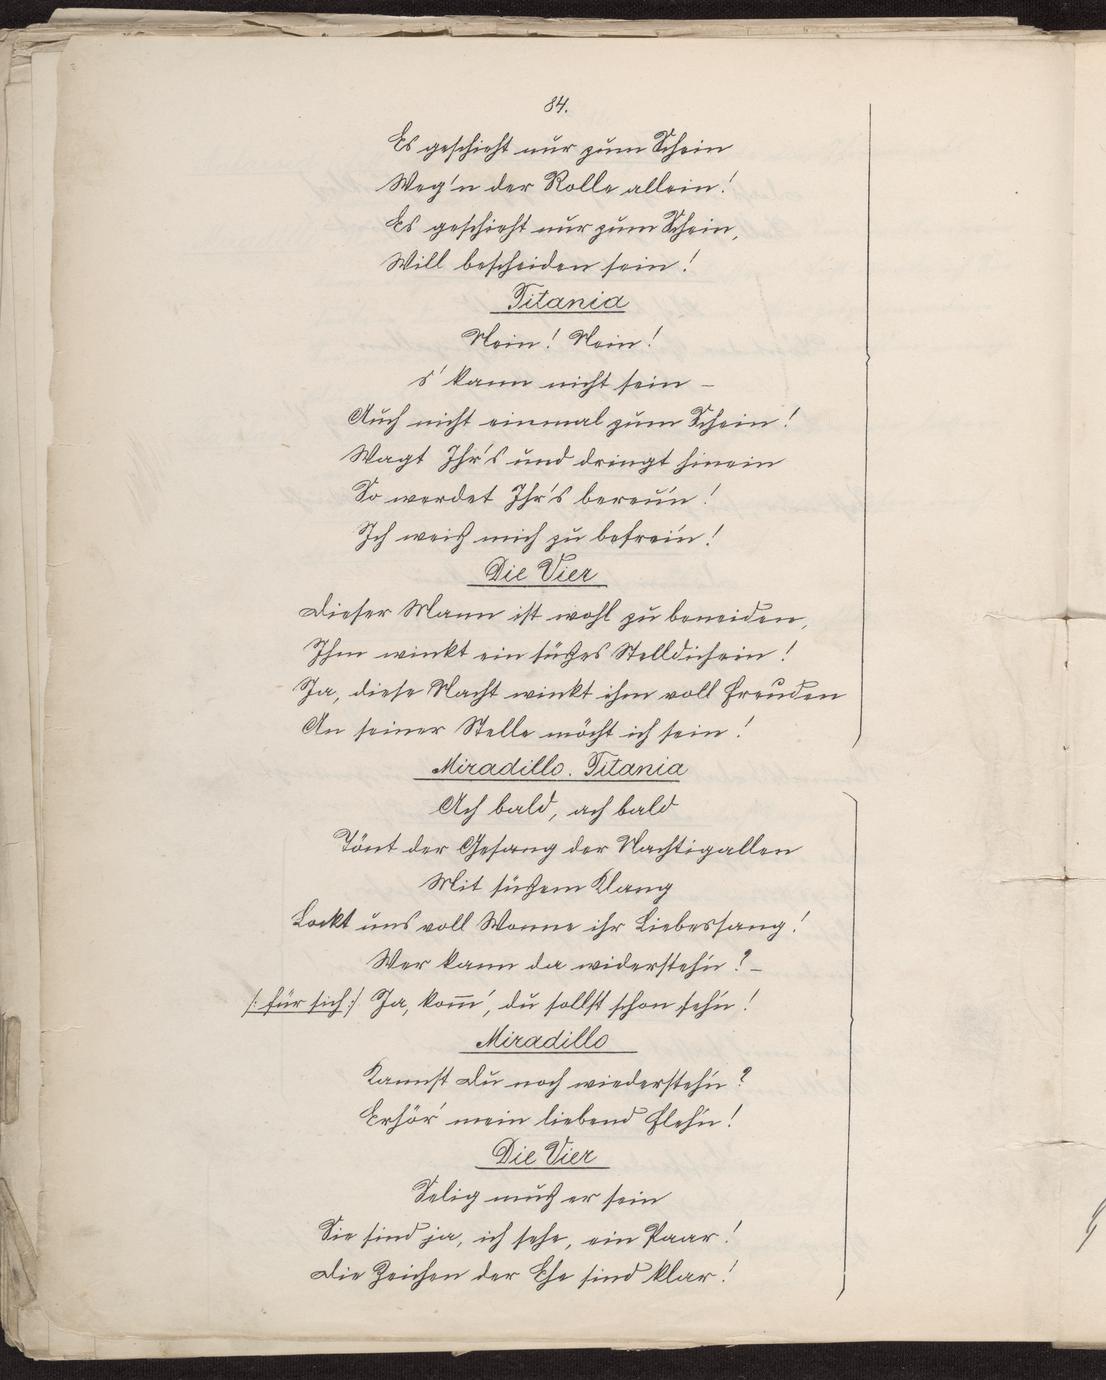 84.
Es geschieht nur zum Schein
Weg'n der Rolle allein!
Es geschieht nur zum Schein,
Will bescheiden sein!
Titania
Nein! Nein!
s' kann nicht sein –
Auch nicht einmal zum Schein!
Wagt Ihr's und dringt hinein
So werdet Ihr's bereu'n!
Ich weiß mich zu befrei'n!
Die Vier
Dieser Mann ist wohl zu beneiden,
Ihm winkt ein süßes Stelldichein!
Ja, diese Nacht winkt ihm voll Freuden
An seiner Stelle möcht ich sein!
Miradillo. Titania
Ach bald, ach bald
Tönt der Gesang der Nachtigallen
Mit süßem Klang
Lockt uns voll Wonne ihr Liebessang!
Wer kann da widersteh'n? –
/: für sich :/ Ja, kom̅', du sollst schon seh'n!
Miradillo
Kannst Du noch wiedersteh'n?
Erhör' mein liebend Fleh'n!
Die Vier
Selig muß er sein
Sie sind ja, ich sehe, ein Paar!
Die Zeichen der Ehe sind klar!